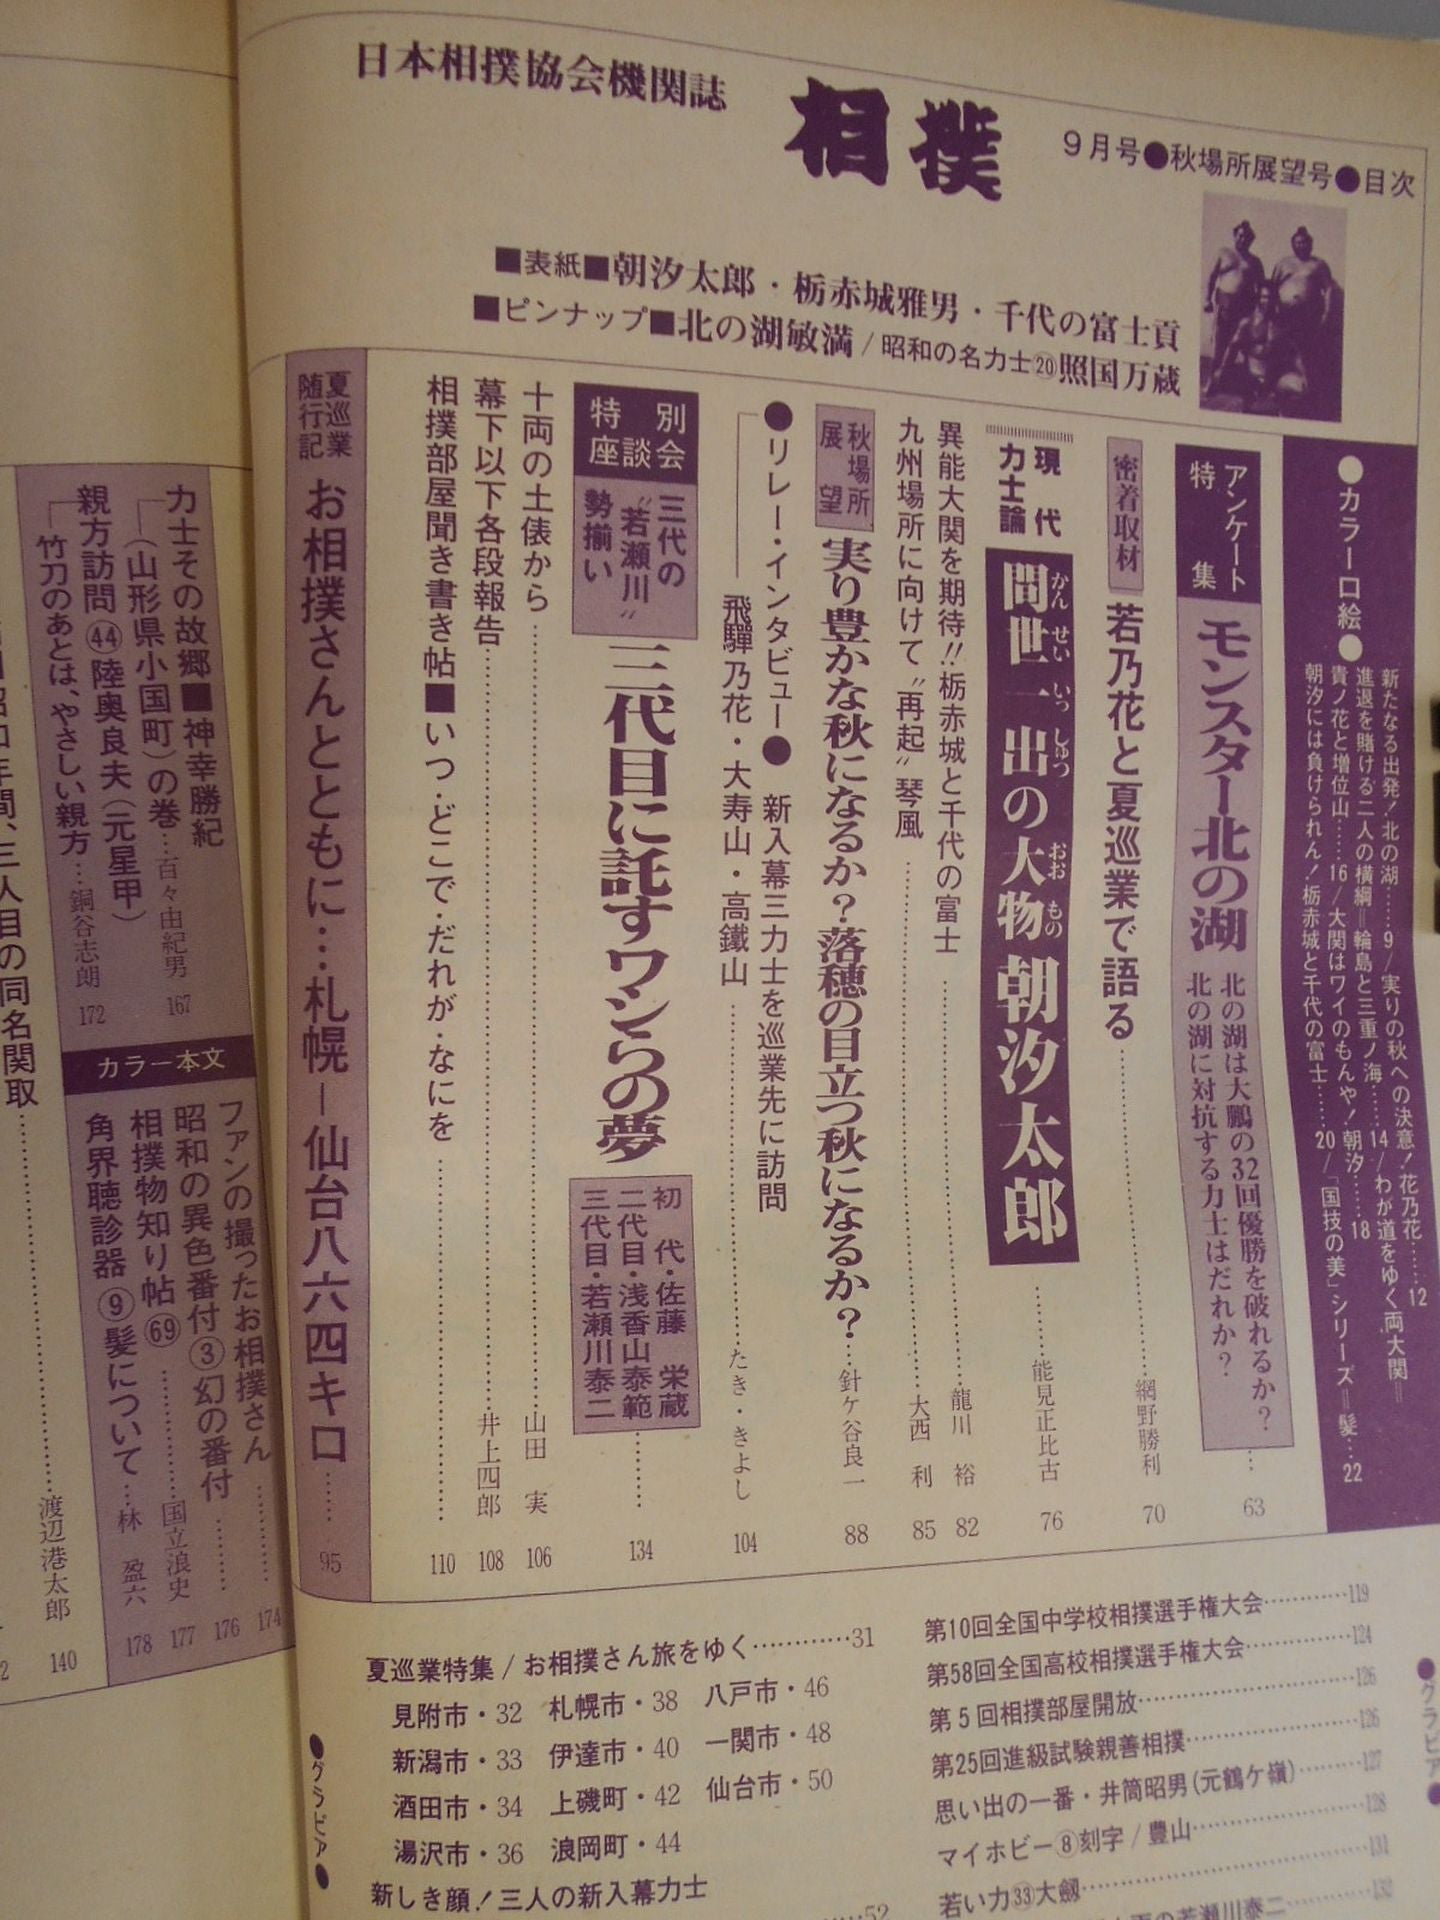 日本相撲協会機関誌
相撲
9月号●秋場所展望号●目次
■表紙■朝汐太郎・栃赤城雅男・千代の富士貢
■ピンナップ■北の湖敏満/昭和の名力士⑳照国万蔵
●カラー口絵●
新たなる出発!北の湖……9/実りの秋への決意!花乃花……12
進退を賭ける二人の横綱=輪島と三重ノ海……14/わが道をゆく両大関=
貴ノ花と増位山……16/大関はワイのもんや!朝汐……18
朝汐には負けられん!栃赤城と千代の富士……20/「国技の美」シリーズ=髪…22
アンケート特集
モンスター北の湖
北の湖は大鵬の32回優勝を破れるか?
北の湖に対抗する力士はだれか?
… 63
密着取材
若乃花と夏巡業で語る……網野勝利 70
現代力士論
間世一出の大物 朝汐太郎……能見正比古 76
かん せい いっ しゅつ おお もの
異能大関を期待!!栃赤城と千代の富士……龍川 裕 82
九州場所に向けて〝再起〟琴風……大西 利 85
秋場所展望
実り豊かな秋になるか?落穂の目立つ秋になるか?…針ヶ谷良一 88
●リレー・インタビュー● 新入幕三力士を巡業先に訪問
飛騨乃花・大寿山・高鐵山……たき・きよし 104
特別座談会
三代の〝若瀬川〟勢揃い
三代目に託すワシらの夢
初 代・佐藤 栄蔵
二代目・浅香山泰範
三代目・若瀬川泰二
…… 134
十両の土俵から……山田 実 106
幕下以下各段報告……井上四郎 108
相撲部屋聞き書き帖■いつ・どこで・だれが・なにを…… 110
夏巡業随行記
お相撲さんとともに…札幌―仙台八六四キロ…… 95
夏巡業特集/お相撲さん旅をゆく…………31
見附市・32 札幌市・38 八戸市・46
新潟市・33 伊達市・40 一関市・48
酒田市・34 上磯町・42 仙台市・50
湯沢市・36 浪岡町・44
新しき顔!三人の新入幕力士
……52
●グラビア●
第10回全国中学校相撲選手権大会…………119
第58回全国高校相撲選手権大会…………124
第5回相撲部屋開放…………126
第25回進級試験親善相撲…………126
思い出の一番・井筒昭男(元鶴ケ嶺)………127
マイホビー⑧刻字/豊山…………128
若い力㉝大劔…………131
の若瀬川泰二……132
●グラビア●
力士その故郷■神幸勝紀
(山形県小国町)の巻…百々由紀男 167
親方訪問㊹陸奥良夫(元星甲)
竹刀のあとは、やさしい親方…銅谷志朗 172
カラー本文
ファンの撮ったお相撲さん…… 174
昭和の異色番付③幻の番付…… 176
相撲物知り帖69……国立浪史 177
角界聴診器⑨髪について…林 盈六 178
年間、三人目の同名関取……渡辺港太郎 140